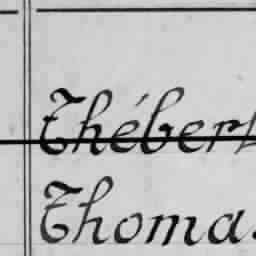 Thébert
Thomas